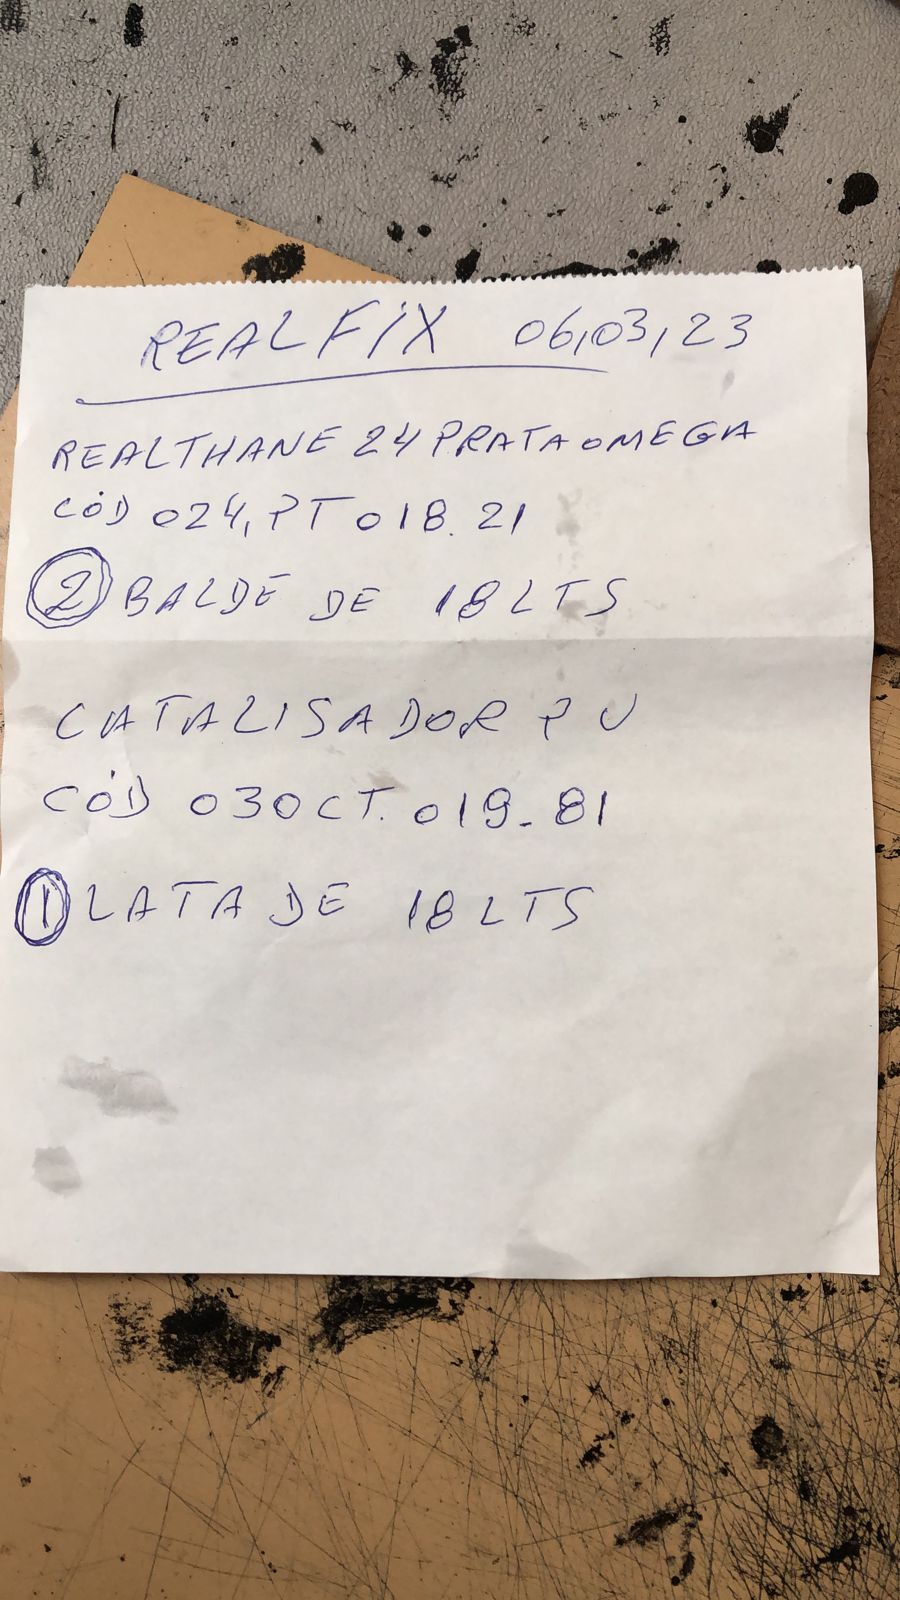 REALFIX 06,03,23
REALTHANE 24 PRATA OMEGA
CÓD 024, PT 018.21
2 BALDE DE 18 LTS
CATALISADOR PU
CÓD 030CT. 019-81
1 LATA DE 18 LTS